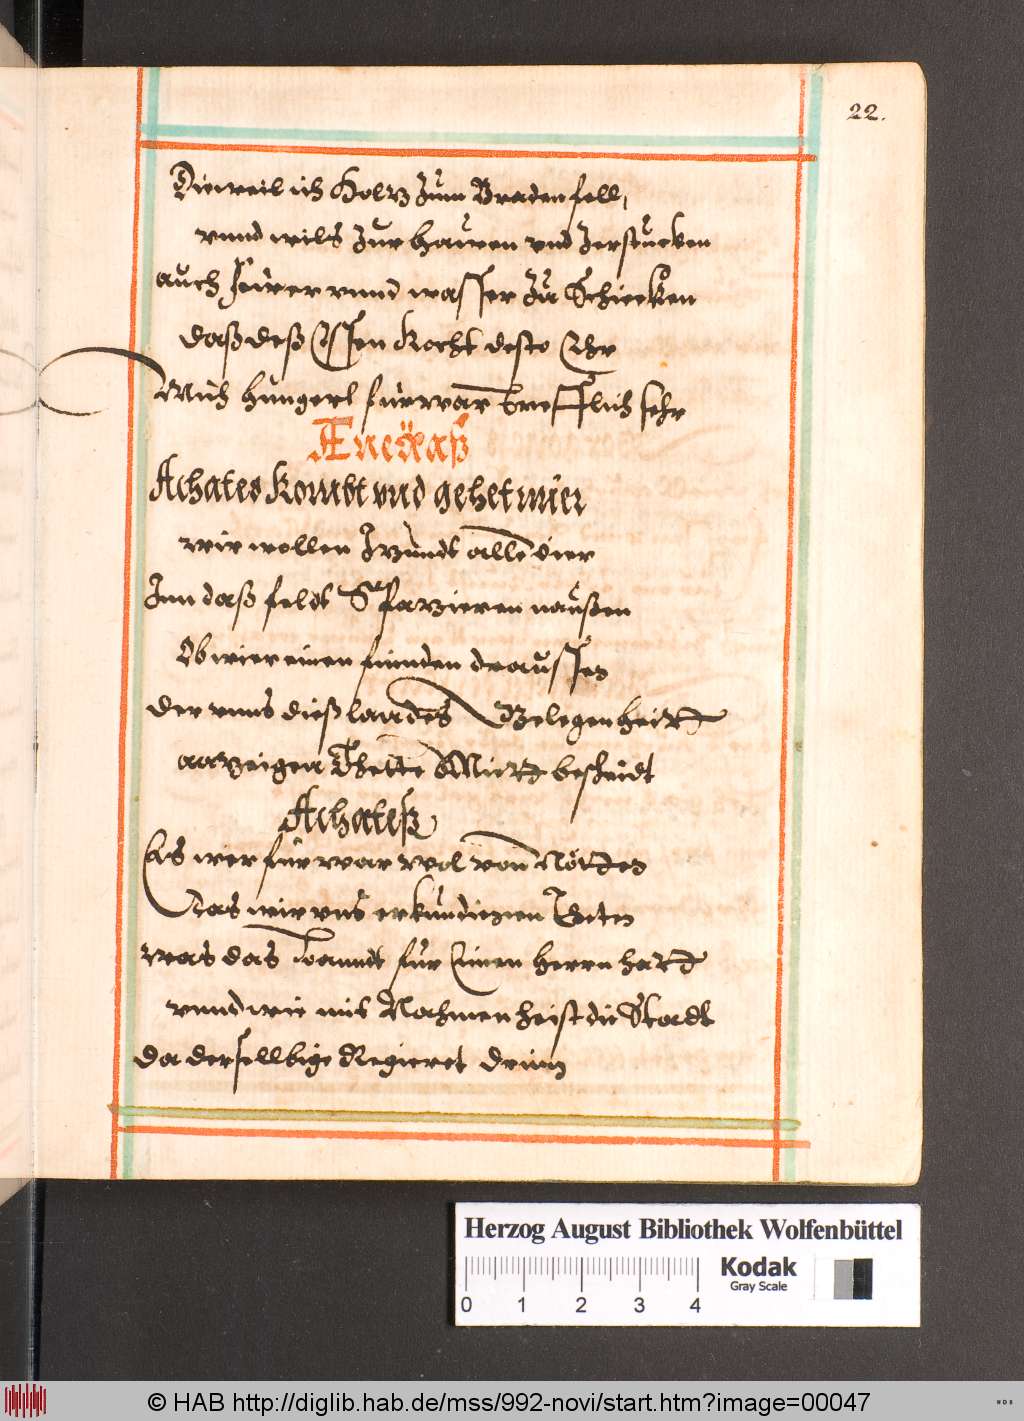 22.
Dieweil ich Holtz zum Braden fell,
vnnd wils zur hauwen vnd Zerstucken
auch feuwer vnnd wasser zu Schicken
daß deß Essen Kocht desto Ehr
Mich hungert fürwar trefflich sehr
Æneaß
Achates Kombt vnd gehet mier
wir wollen Itzundt alle vier
Inn daß feldt Spatzieren naußen
Ob wier einen finnden draussen
der vnns dieß landes Gelegenheitt
anzeigen Thette Mitt bescheidt
Achateß
Es wer fürwar wol von Nötten
Das wir vns erkundienen
was das Lanndt für Einen herrn hatt
vnnd wie mit Nahmen heist die Stadt
da dersellbige Regieret drinn
Herzog August Bibliothek Wolfenbüttel
Kodak
Gray Scale
0 1 2 3 4
© HAB http://diglib.hab.de/mss/992-novi/start.htm?image=00047